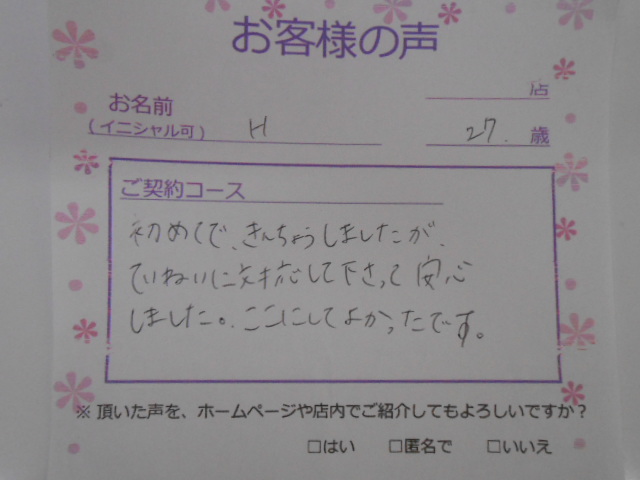 お客様の声
店
お名前
(イニシャル可) H 27. 歳
ご契約コース
初めてで、きんちょうしましたが、
ていねいに対応して下さって安心
しました。ここにしてよかったです。
※ 頂いた声を、ホームページや店内でご紹介してもよろしいですか？
□はい □匿名で □いいえ